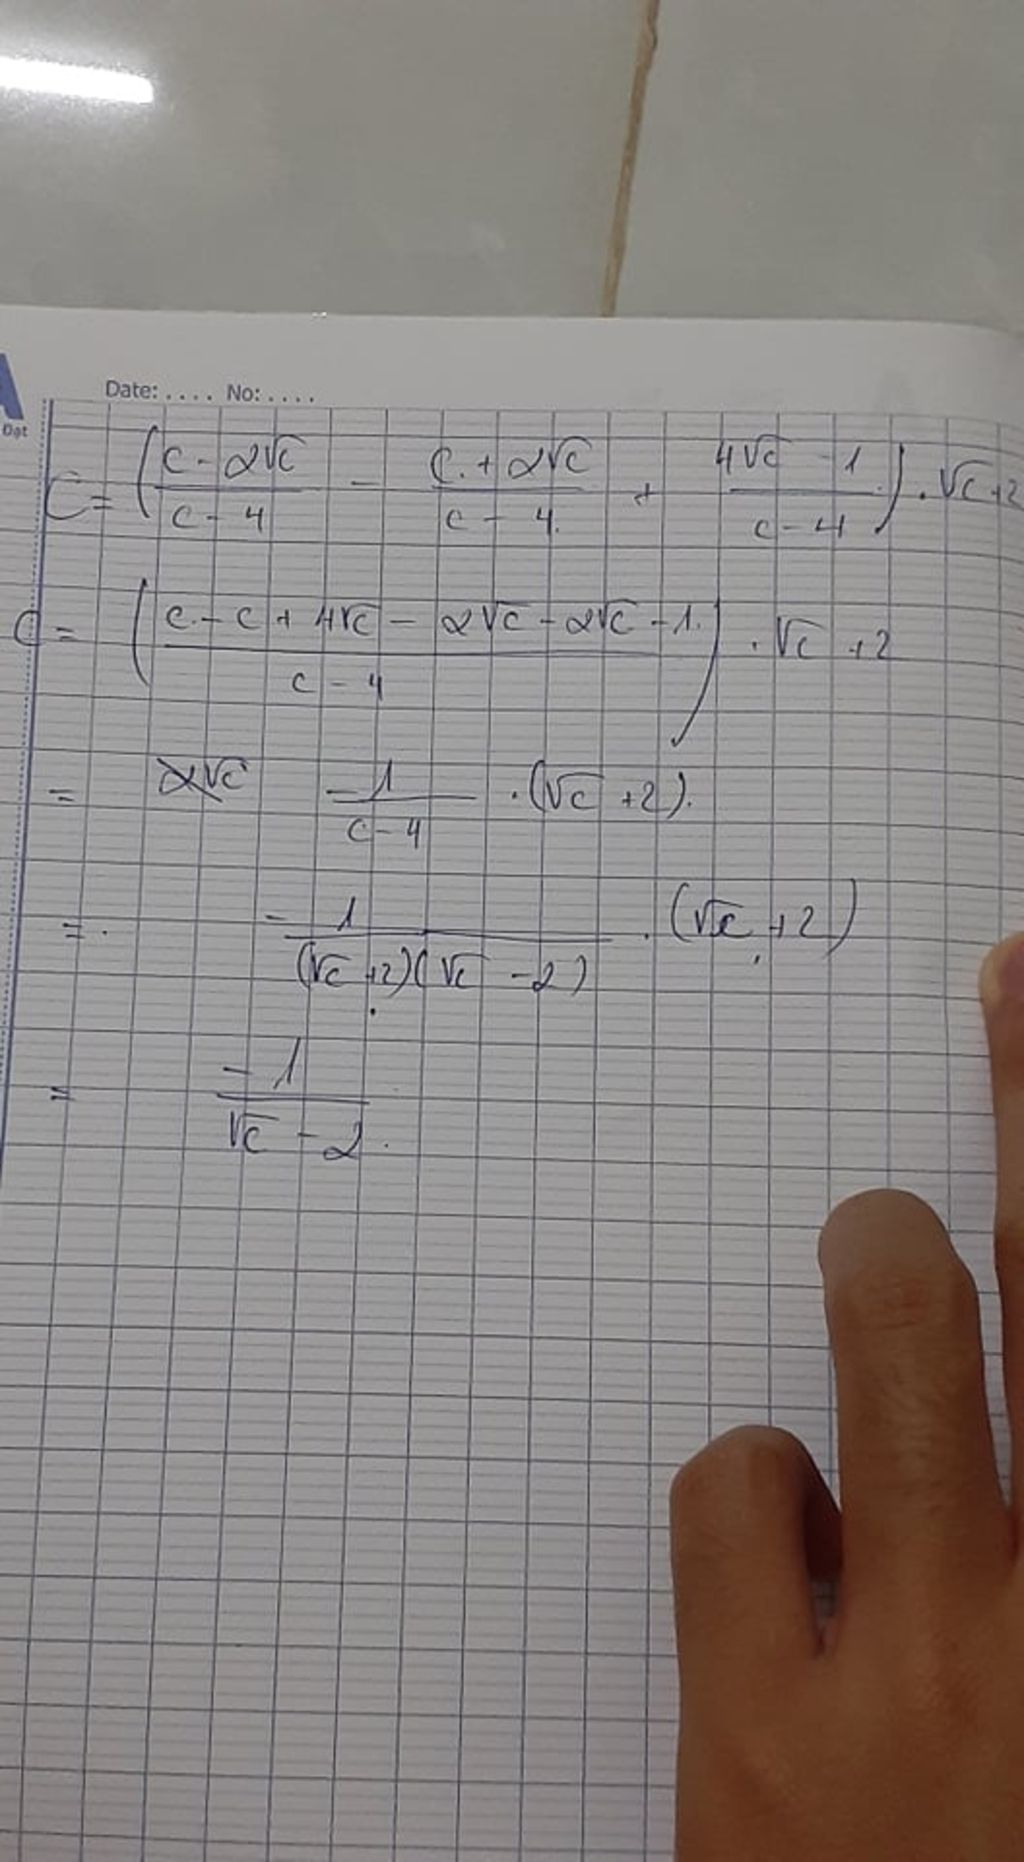 A
Date: .... No: ....
C = ( (c - 2√c)/(c - 4) - (c. + 2√c)/(c - 4.) + (4√c - 1)/(c - 4) ) . √c + 2
C = ( (c - c + 4√c - 2√c - 2√c - 1.)/(c - 4) ) . √c + 2
= -1/(c - 4) . (√c + 2).
= . -1/((√c + 2)(√c - 2)) . (√c + 2)
= -1/(√c - 2) .